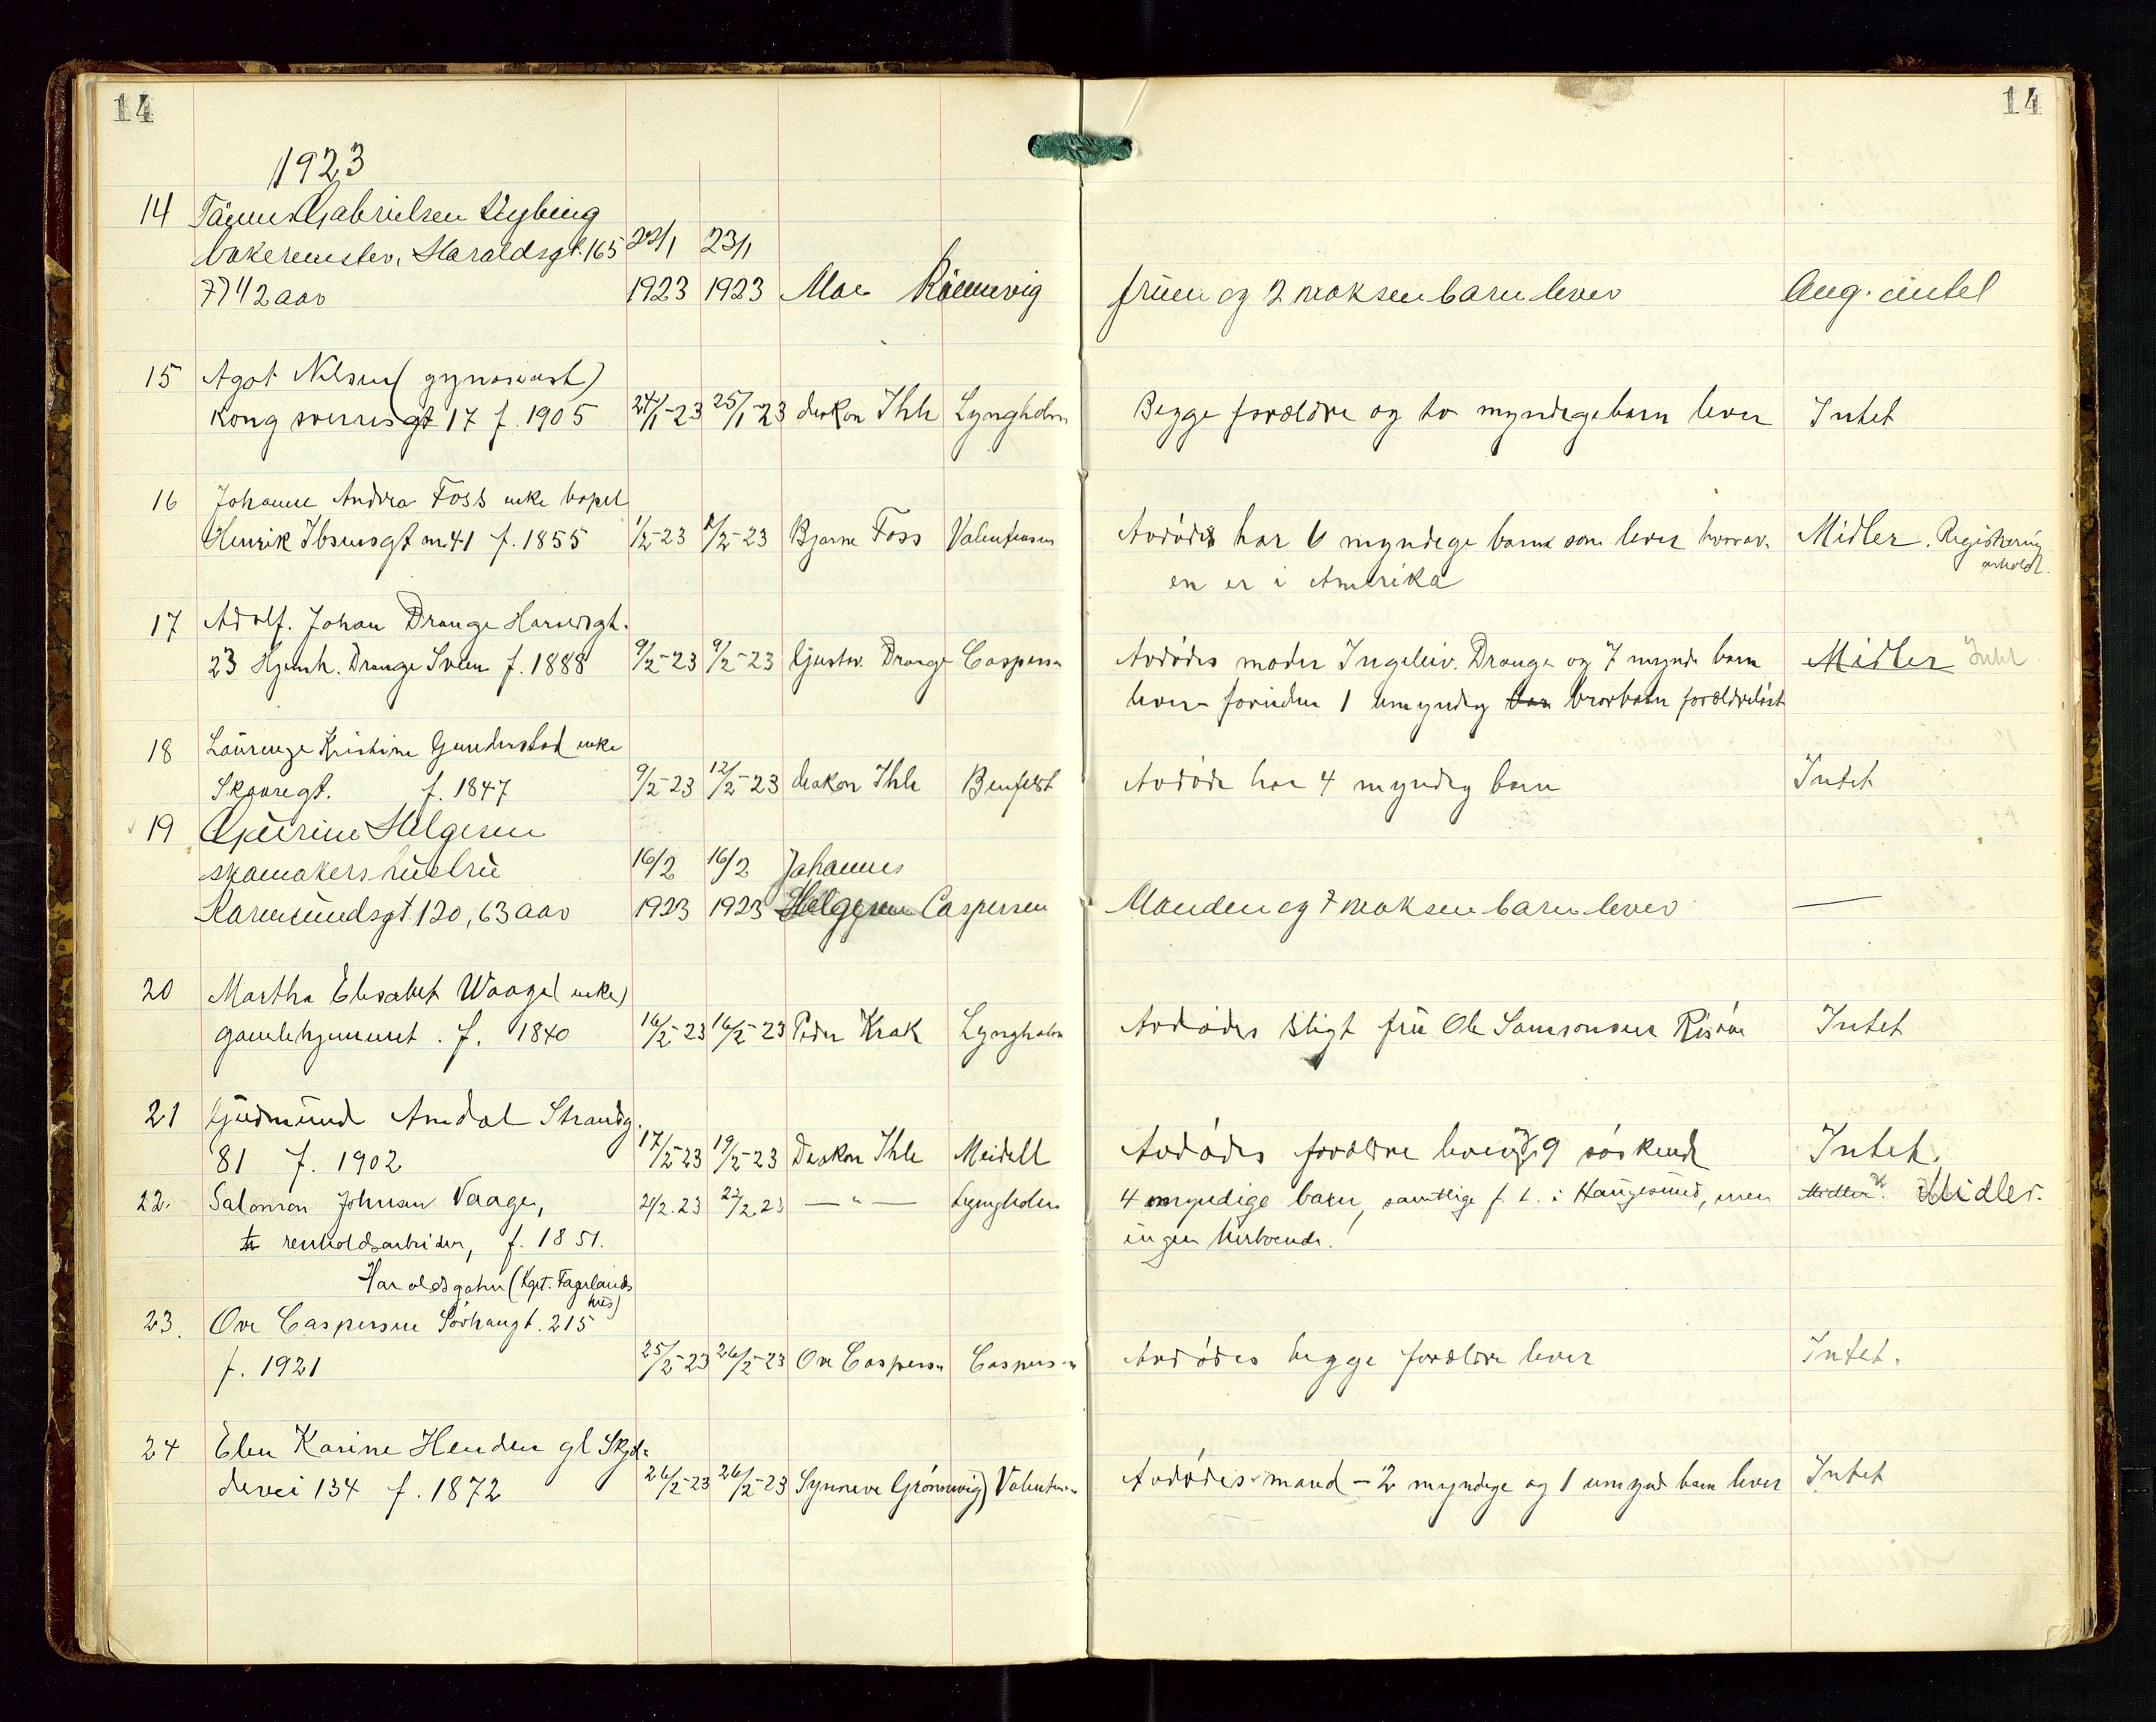 14
14
1923
14 Gabrielsen
bakermester, Haraldsgt. 165 22/1 23/1
42 aar 1923 1923 Moe fruen og 2 voksen barn lever Ang. intet
15 Agot Nilsen (gymnasiast)
Kong sverresgt 17 f. 1905 24/1-23 25/1-23 deakon Ihle Lyngholm Begge forældre og to myndige barn lever Intet
16 Johanne Andrea Foss enke bopel
Henrik Ibsensgt nr 41 f. 1855 1/2-23 /2-23 Bjarne Foss Valentinsen Avdødes har 6 myndige barn som lever hvorav. Midler. Registrering
en er i Amerika avholdt.
17 Adolf. Johan Drange
23 Hjemh. Drange Sveen f. 1888 9/2-23 9/2-23 Gustav. Drange Caspersen Avdødes moder Ingeleiv. Drange og 7 mynde barn Midler Intet
lever - foruden 1 umyndig bar brorbarn forældreløst
18 Laurenze Kristine Gundersted enke
Skaaregt. f. 1847 9/2-23 12/2-23 deakon Ihle Avdøde har 4 myndig barn Intet
19 Helgesen
skomakers hustru 16/2 16/2 Johannes
Karmsundsgt. 120, 63 aar 1923 1923 Helgesen Caspersen Manden og 7 voksen barn lever —
20 Martha Elisabet Waage (enke)
gamlehjemmet. f. 1840 16/2-23 16/2-23 Peder Krak Lyngholm Avdødes sligt fru Ole Samsonsen Risøen Intet
21 Gudmund Amdal Strandg.
81 f. 1902 17/2-23 19/2-23 Deakon Ihle Meidell Avdødes forældre lever og 9 søskende Intet.
22. Salomon Johnsen Vaage, 21/2.23 22/2.23 — " — Lyngholm 4 myndige barn, samtlige f. t. i Haugesund, men Midler. Midler.
renholdsarbeider, f. 1851. ingen herboende.
Haraldsgaten (Kapt. Fagerlands
hus)
23. Ove Caspersen Sørhaugt. 215
f. 1921 25/2-23 26/2-23 Ove Caspersen Caspersen Avdødes begge forældre lever Intet.
24 Elen Karine Henden gl Skjol-
devei 134 f. 1872 26/2-23 26/2-23 Synneve Grønnevig) Valentinsen Avdødes mand - 2 myndige og 1 umynd barn lever Intet